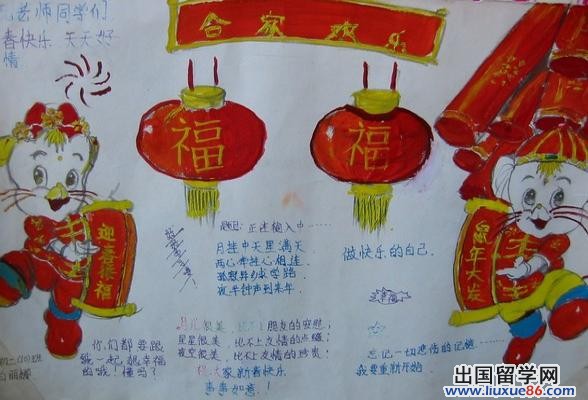 老师同学们
春快乐 天天好
情
合家欢乐
福
福
迎喜福
鼠年大发
题目：正在输入中……
月挂中天星满天
两心牵挂心相连
异乡求学路
夜半钟声到来年
做快乐的自己.
月儿很美，比不上朋友的安慰；
星星很美，比不上友情的点缀；
夜空很美，比不上友情的珍贵；
祝大家新春快乐
事事如意！
你们都要跟
我一起很幸福
的哦！懂吗？
忘记一切悲伤的记忆
我要重新开始.
初二(10)班
白丽娜
出国留学网
www.liuxue86.com